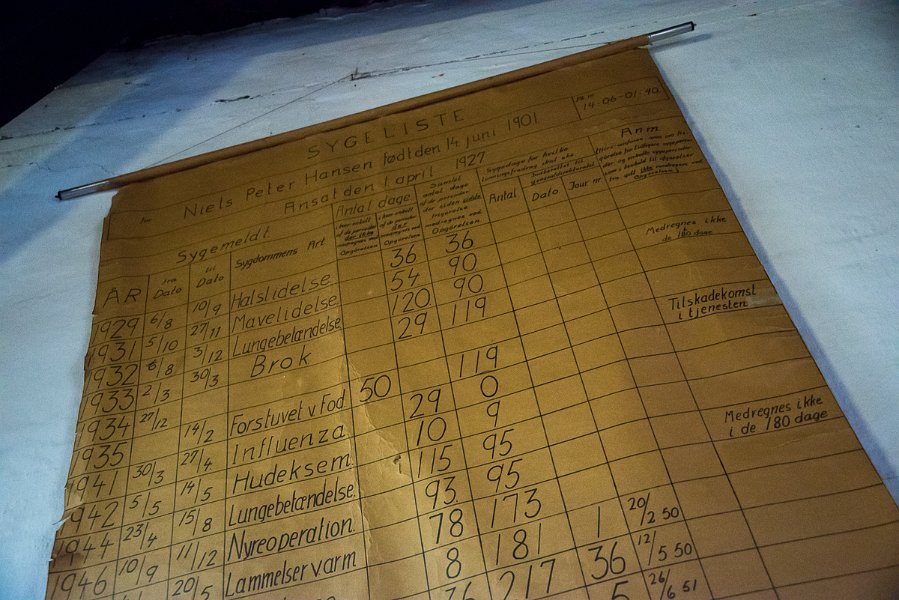 SYGELISTE
14-06-01-40
for Niels Peter Hansen født den 14 juni 1901
Ansat den 1 april 1927
Anm
Sygemeldt
Antal dage
Samlet antal dage
Sygedage for hvilke
ÅR fra Dato til Dato Sygdommens Art
Antal Dato Jour nr
1929 6/8 10/9 Halslidelse 36 36 Medregnes ikke
de 180 dage
1931 5/10 27/11 Mavelidelse 54 90
1932 6/8 3/12 Lungebetændelse 120 90 Tilskadekomst
i tjenesten
1933 2/3 30/3 Brok 29 119
1934 27/2 14/2 Forstuvet v Fod 50 119
1935 27/4 Influenza 29 0 Medregnes ikke
i de 180 dage
1941 30/3 14/5 Hudeksem 10 9
1942 5/5 15/8 Lungebetændelse 115 95
1944 23/4 11/12 Nyreoperation 93 95
1946 10/9 20/5 Lammelser v arm 78 173
8 181 1 20/2 50
217 36 12/5 50
5 26/6 51